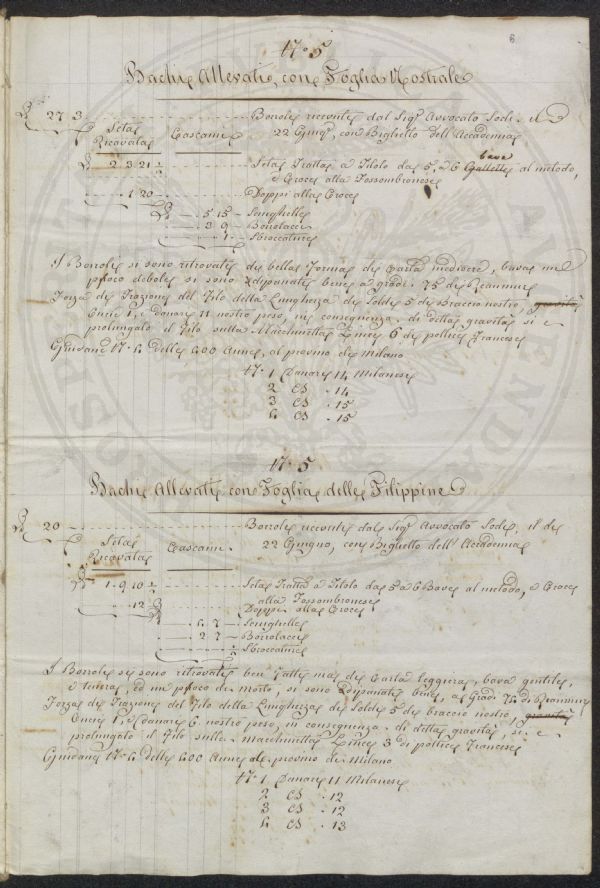 6
N.° 5
Bachi Allevati, con Foglia Nostrale
℔ 27 3 Bozzoli ricevuti dal Sig.r Avvocato Sode, il
Seta Ricavata Cascami 22 Giug.o, con Biglietto dell'Accademia
℔ 2 3 21 Seta Tratta a Titolo da 5, a 6 bave Gallette al metodo,
e Croce alla Fossombronese
1 20 Doppi alla Croce
℔ 5 15 Semighelle
3 9 Bozzolacci
1 Sbroccature
I Bozzoli si sono ritrovati di bella forma di Carta mediocre, bava un
poco debole si sono dipanati bene a gradi 72 di Reaumur
Forza di Trazione del Filo della Lunghezza di Soldi 5 di Braccio nostro, gravità
Oncie 1, e Danari 11 nostro peso, in conseguenza di detta gravità si è
prolungato il Filo sulla Macchinetta Linee 6 di pollice Francese
Gindane N.° 4 delle 400 Anne, al provino di Milano
N.° 1 Danari 14 Milanesi
2 CS 14
3 CS 15
4 CS 15
N.° 5
Bachi Allevati con Foglia delle Filippine
℔ 20 Bozzoli ricevuti dal Sig.r Avvocato Sode, il dì
Seta Ricavata Cascami 22 Giugno, con Biglietto dell'Accademia
℔ 1 9 10 Seta Tratta a Titolo da 5 a 6 Bave al metodo, e Croce
alla Fossombronese
12 Doppi alla Croce
6 7 Semighelle
2 7 Bozzolacci
Sbroccature
I Bozzoli si sono ritrovati ben fatti ma di Carta leggiera, bava gentile,
e tenera, ed un poco di morti, si sono dipanati bene, a Gradi 72 di Reaumur
Forza di Trazione del Filo della Lunghezza di Soldi 5 di braccio nostro, gravità
Oncie 1, e Danari 6 nostro peso, in conseguenza di detta gravità, si è
prolungato il Filo sulla Macchinetta Linee 3 di pollice Francese
Gindane N.° 4 delle 400 Anne al provino di Milano
N.° 1 Danari 11 Milanesi
2 CS 12
3 CS 12
4 CS 13